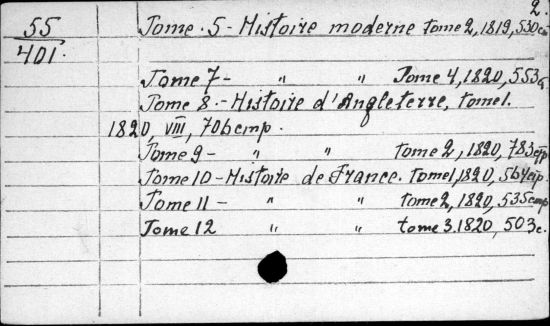 2.
55 Tome 5 - Histoire moderne tome 2, 1819, 530 cm
401.
Tome 7 - " " Tome 4, 1820, 553 c.
Tome 8. - Histoire d'Angleterre, tome 1.
1820, VIII, 706 cmp.
Tome 9 - " " tome 2, 1820, 783 cmp
Tome 10 - Histoire de France. Tome 1, 1820, 564 cmp.
Tome 11 - " " tome 2, 1820, 535 cmp
Tome 12 " " tome 3. 1820, 503 c.